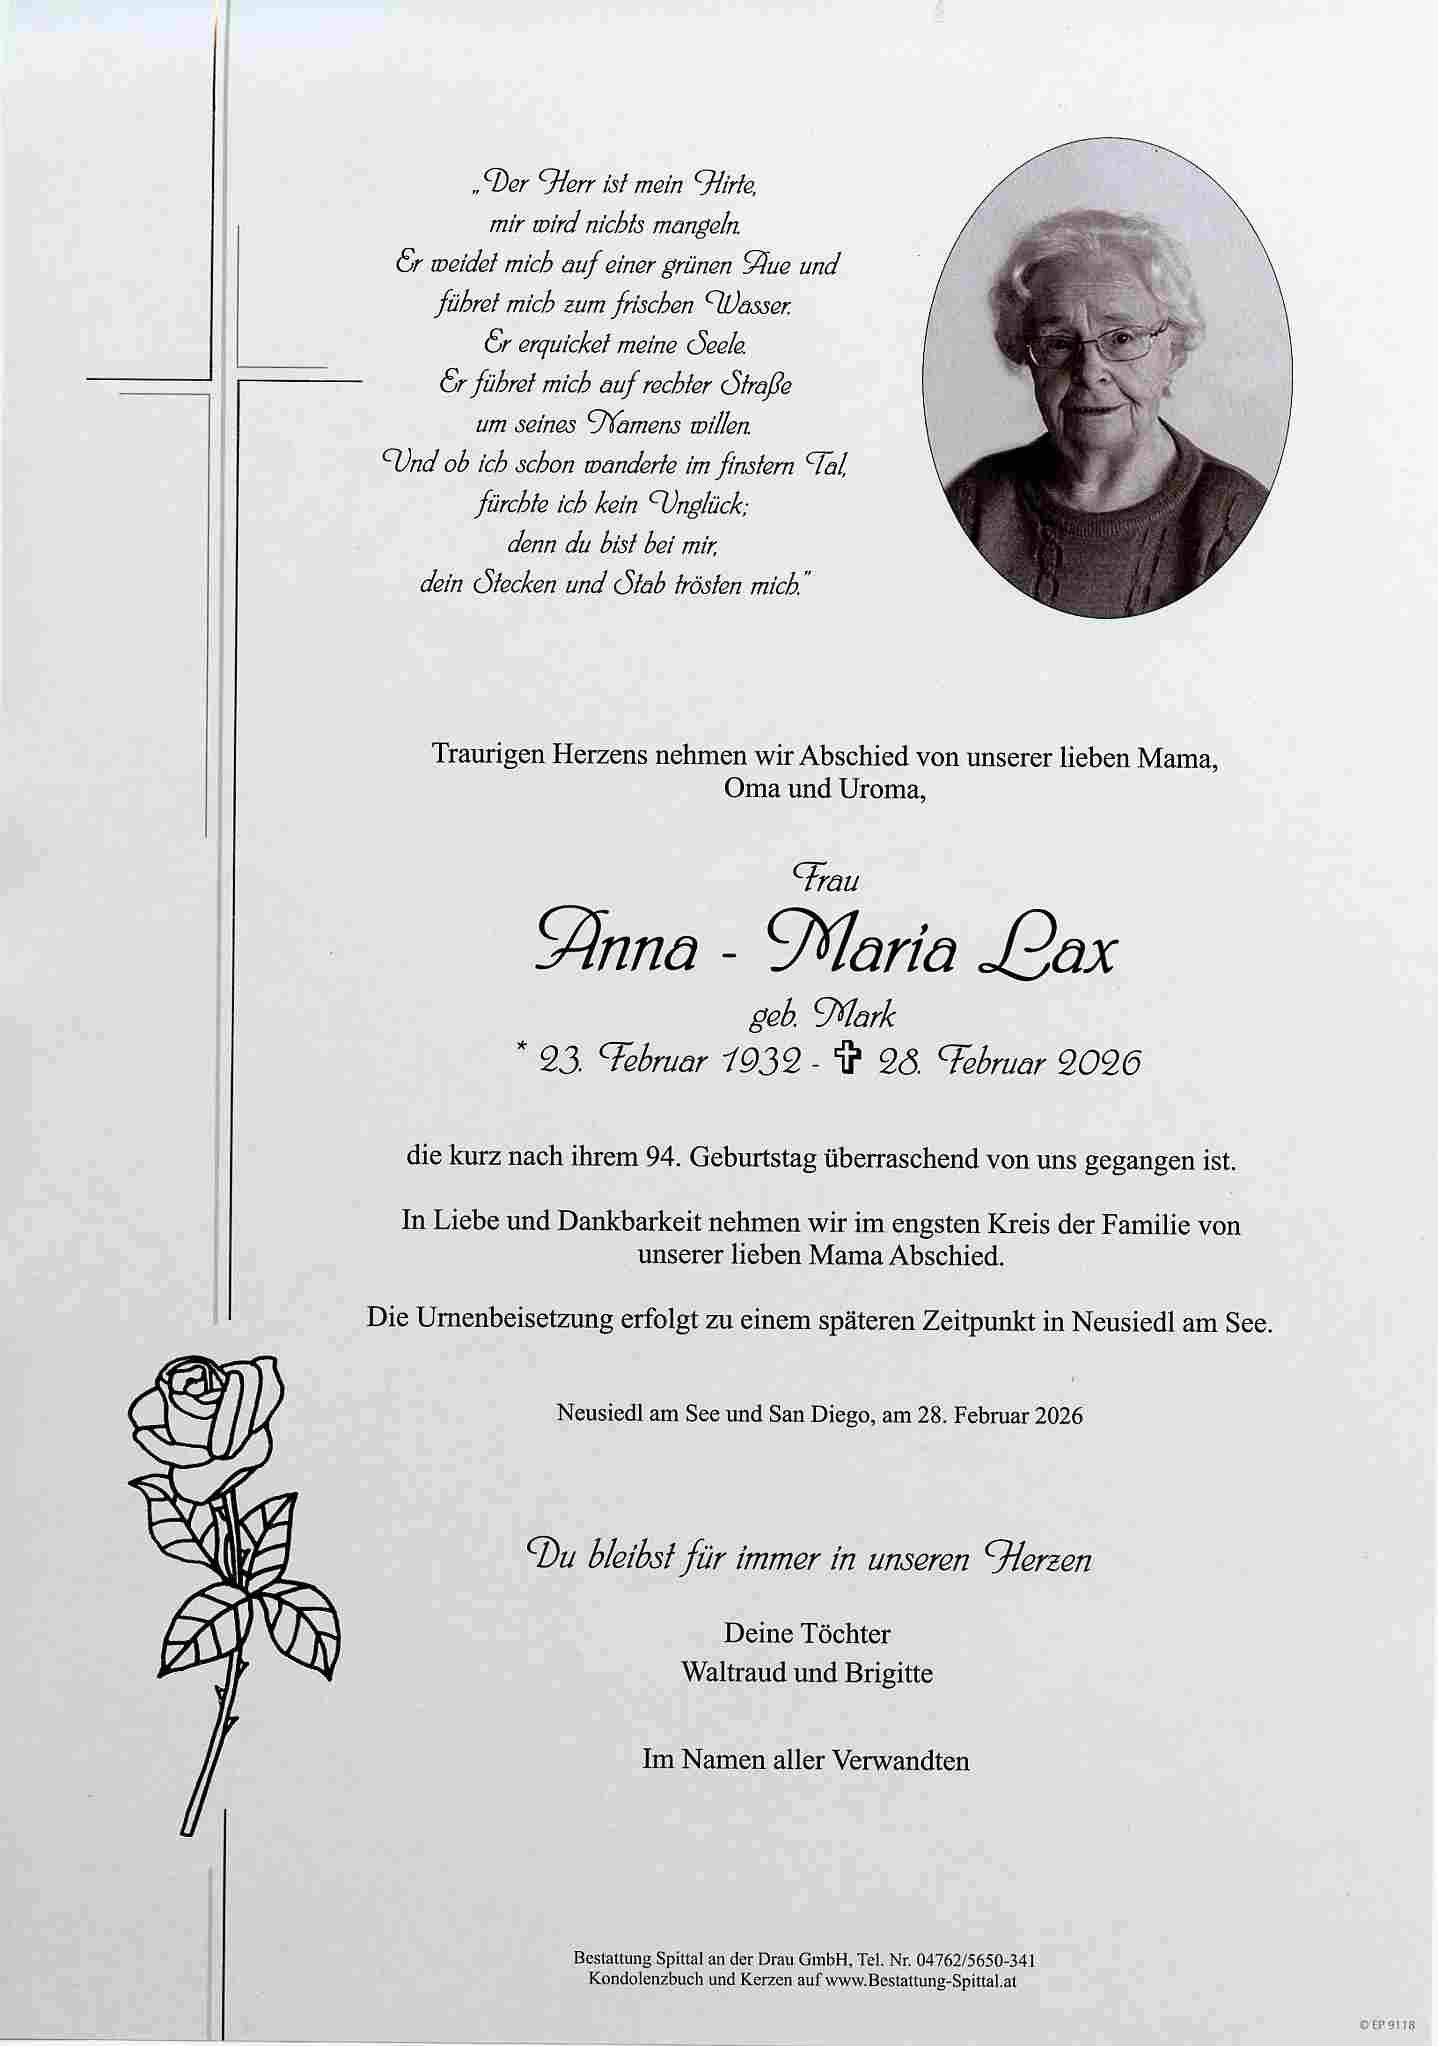 „Der Herr ist mein Hirte,
mir wird nichts mangeln.
Er weidet mich auf einer grünen Aue und
führet mich zum frischen Wasser.
Er erquicket meine Seele.
Er führet mich auf rechter Straße
um seines Namens willen.
Und ob ich schon wanderte im finstern Tal,
fürchte ich kein Unglück;
denn du bist bei mir,
dein Stecken und Stab trösten mich.“
Traurigen Herzens nehmen wir Abschied von unserer lieben Mama,
Oma und Uroma,
Frau
Anna - Maria Lax
geb. Mark
* 23. Februar 1932 - ✝ 28. Februar 2026
die kurz nach ihrem 94. Geburtstag überraschend von uns gegangen ist.
In Liebe und Dankbarkeit nehmen wir im engsten Kreis der Familie von
unserer lieben Mama Abschied.
Die Urnenbeisetzung erfolgt zu einem späteren Zeitpunkt in Neusiedl am See.
Neusiedl am See und San Diego, am 28. Februar 2026
Du bleibst für immer in unseren Herzen
Deine Töchter
Waltraud und Brigitte
Im Namen aller Verwandten
Bestattung Spittal an der Drau GmbH, Tel. Nr. 04762/5650-341
Kondolenzbuch und Kerzen auf www.Bestattung-Spittal.at
© EP 9118